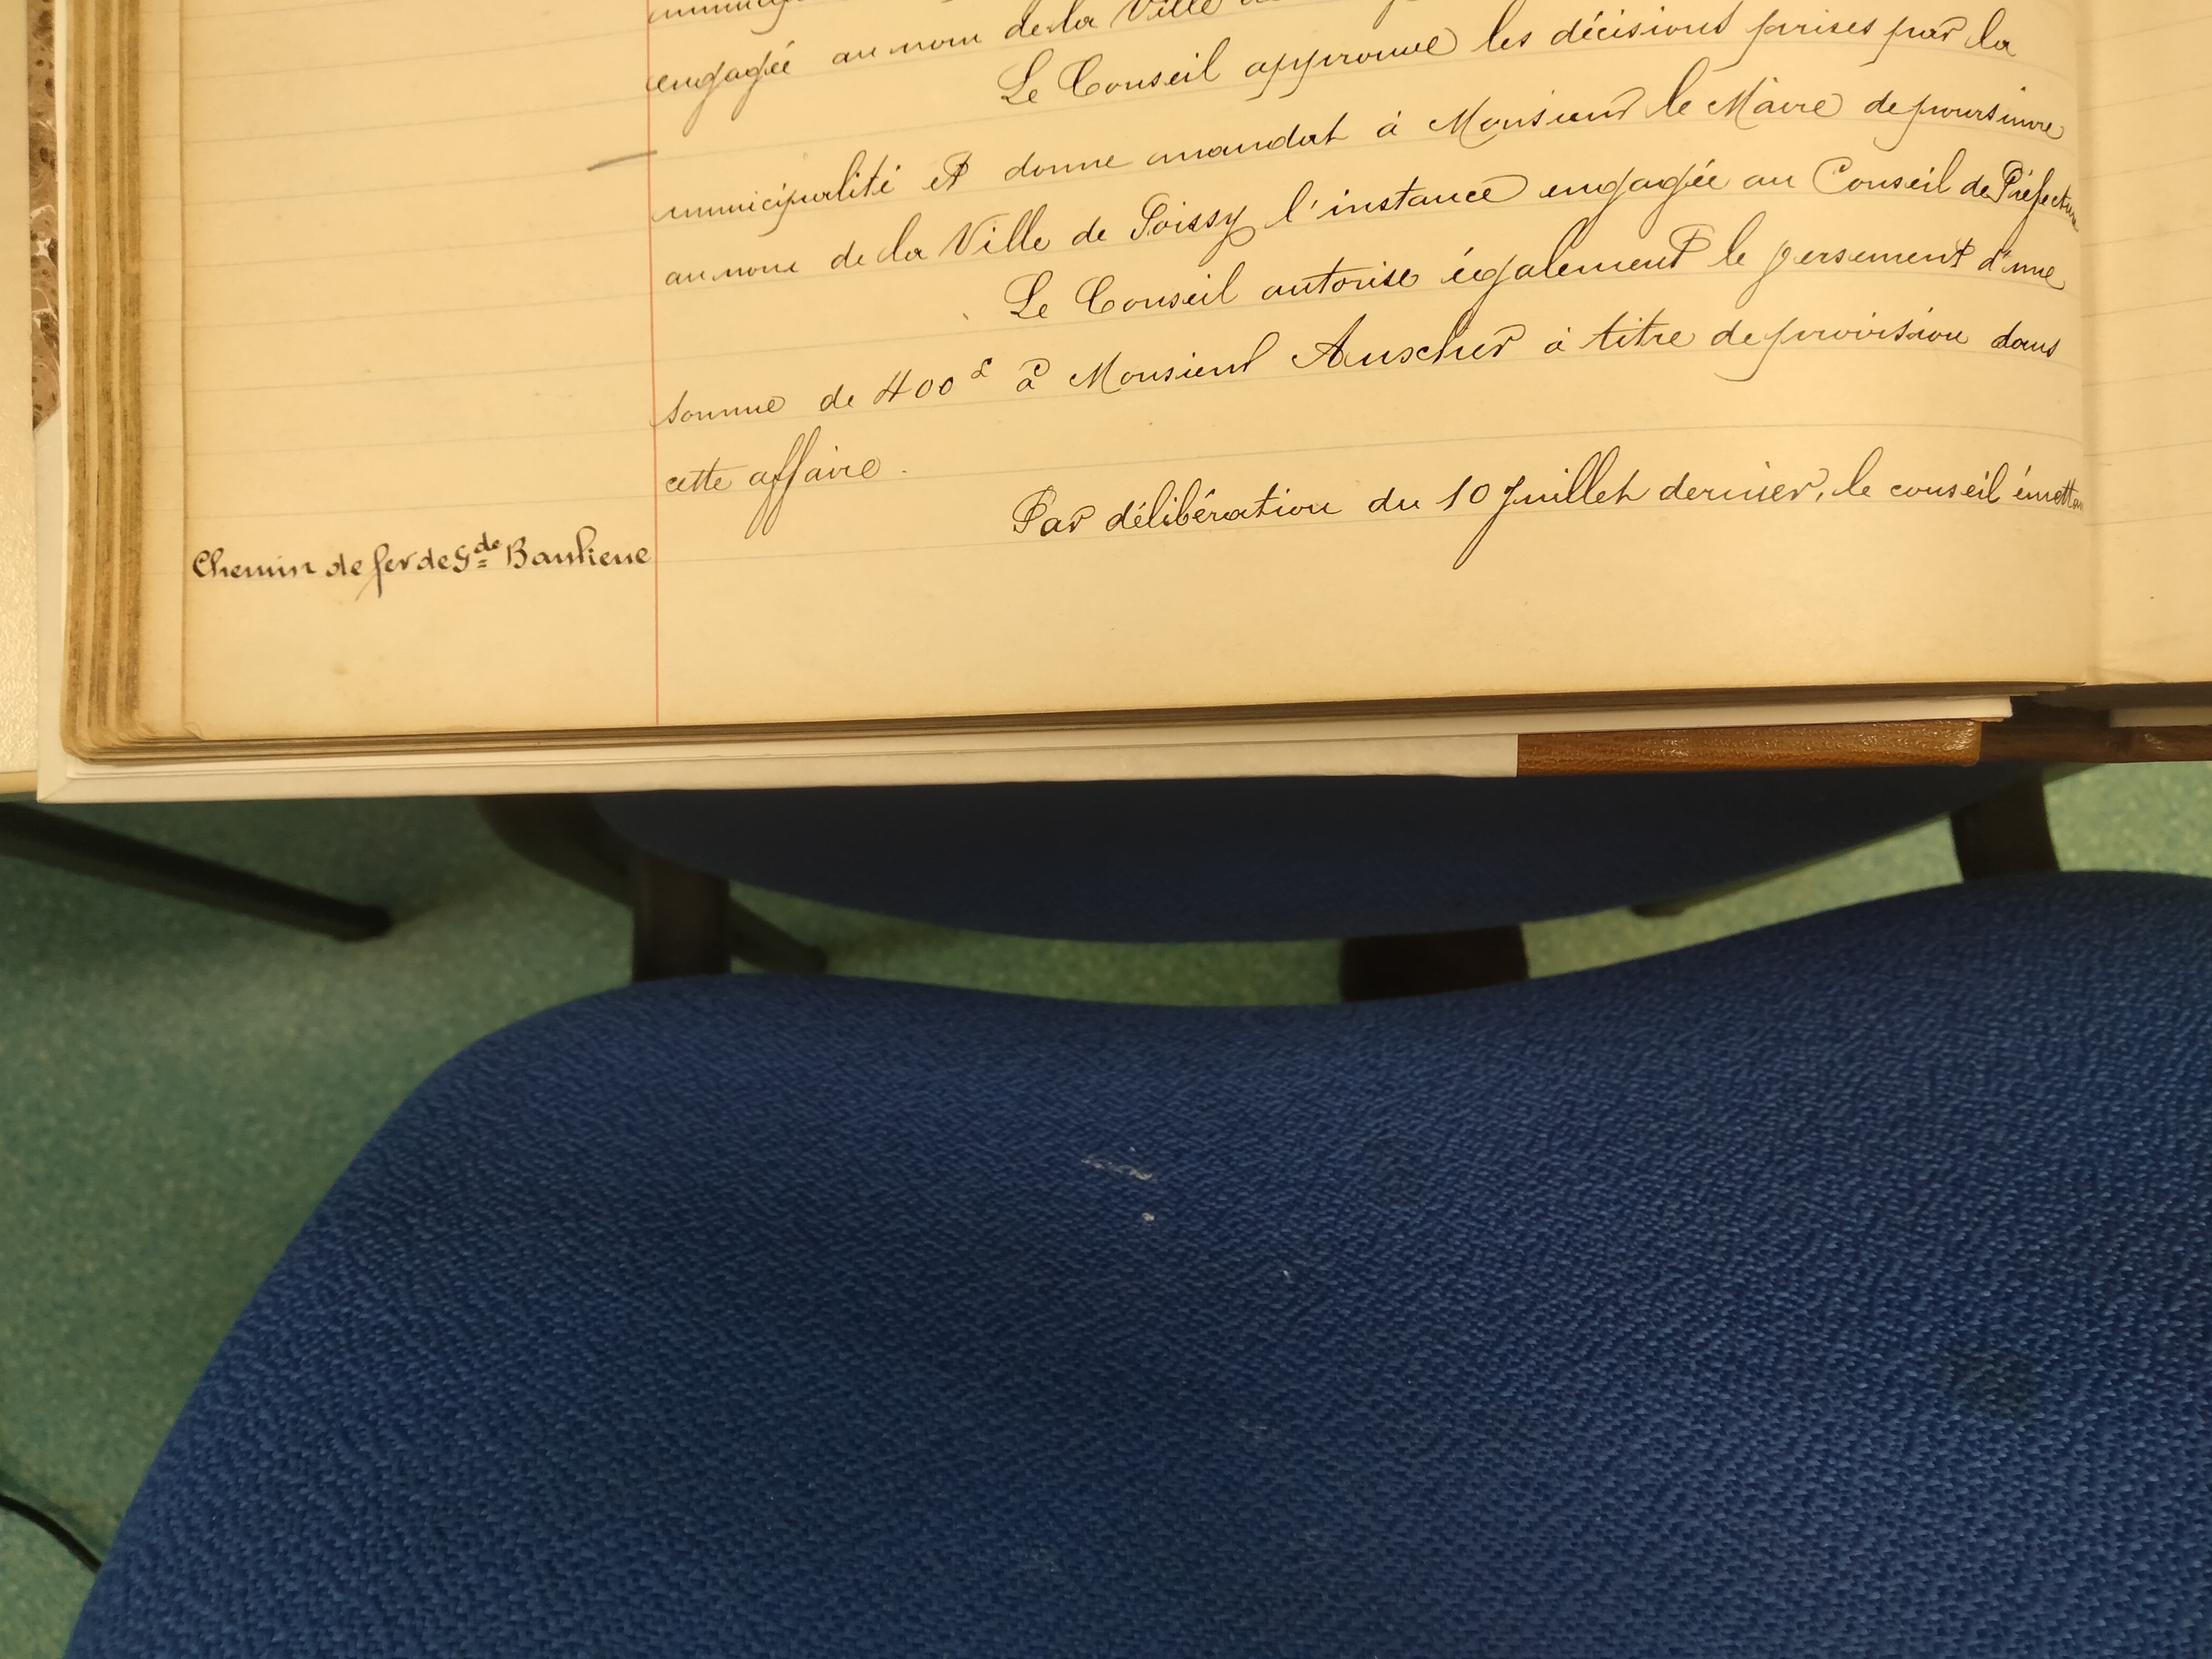 engagée au nom de la Ville
Le Conseil approuve les décisions prises par la
municipalité et donne mandat à Monsieur le Maire de poursuivre
au nom de la Ville de Poissy l'instance engagée au Conseil de Préfecture
Le Conseil autorise également le versement d'une
somme de 400 f à Monsieur Auscher à titre de provision dans
cette affaire.
Chemin de fer de Gde Banlieue
Par délibération du 10 Juillet dernier, le conseil émettant